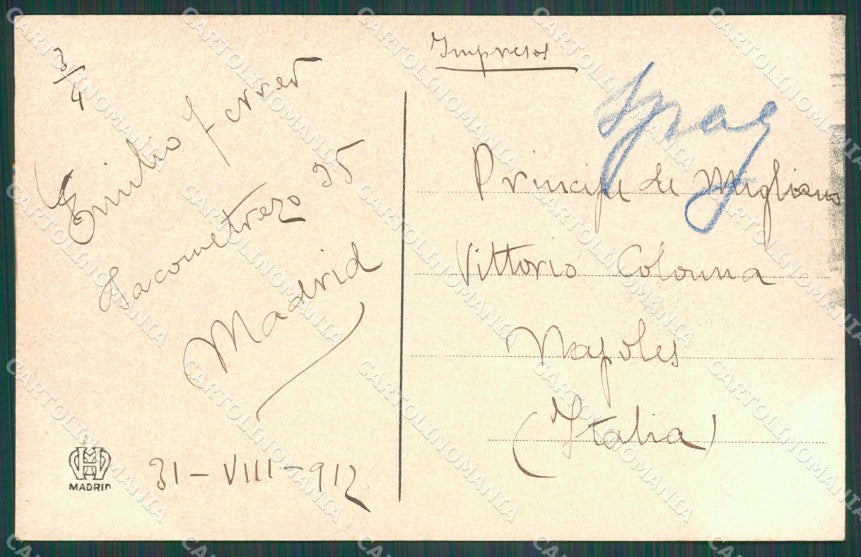 3/4
Emilio Ferrer
Jacometrezo 35
Madrid
31-VIII-912
MADRID
Impresos
Spag
Principe de Migliano
Vittorio Colonna
Napoles
(Italia)
CARTOLINOMANIA